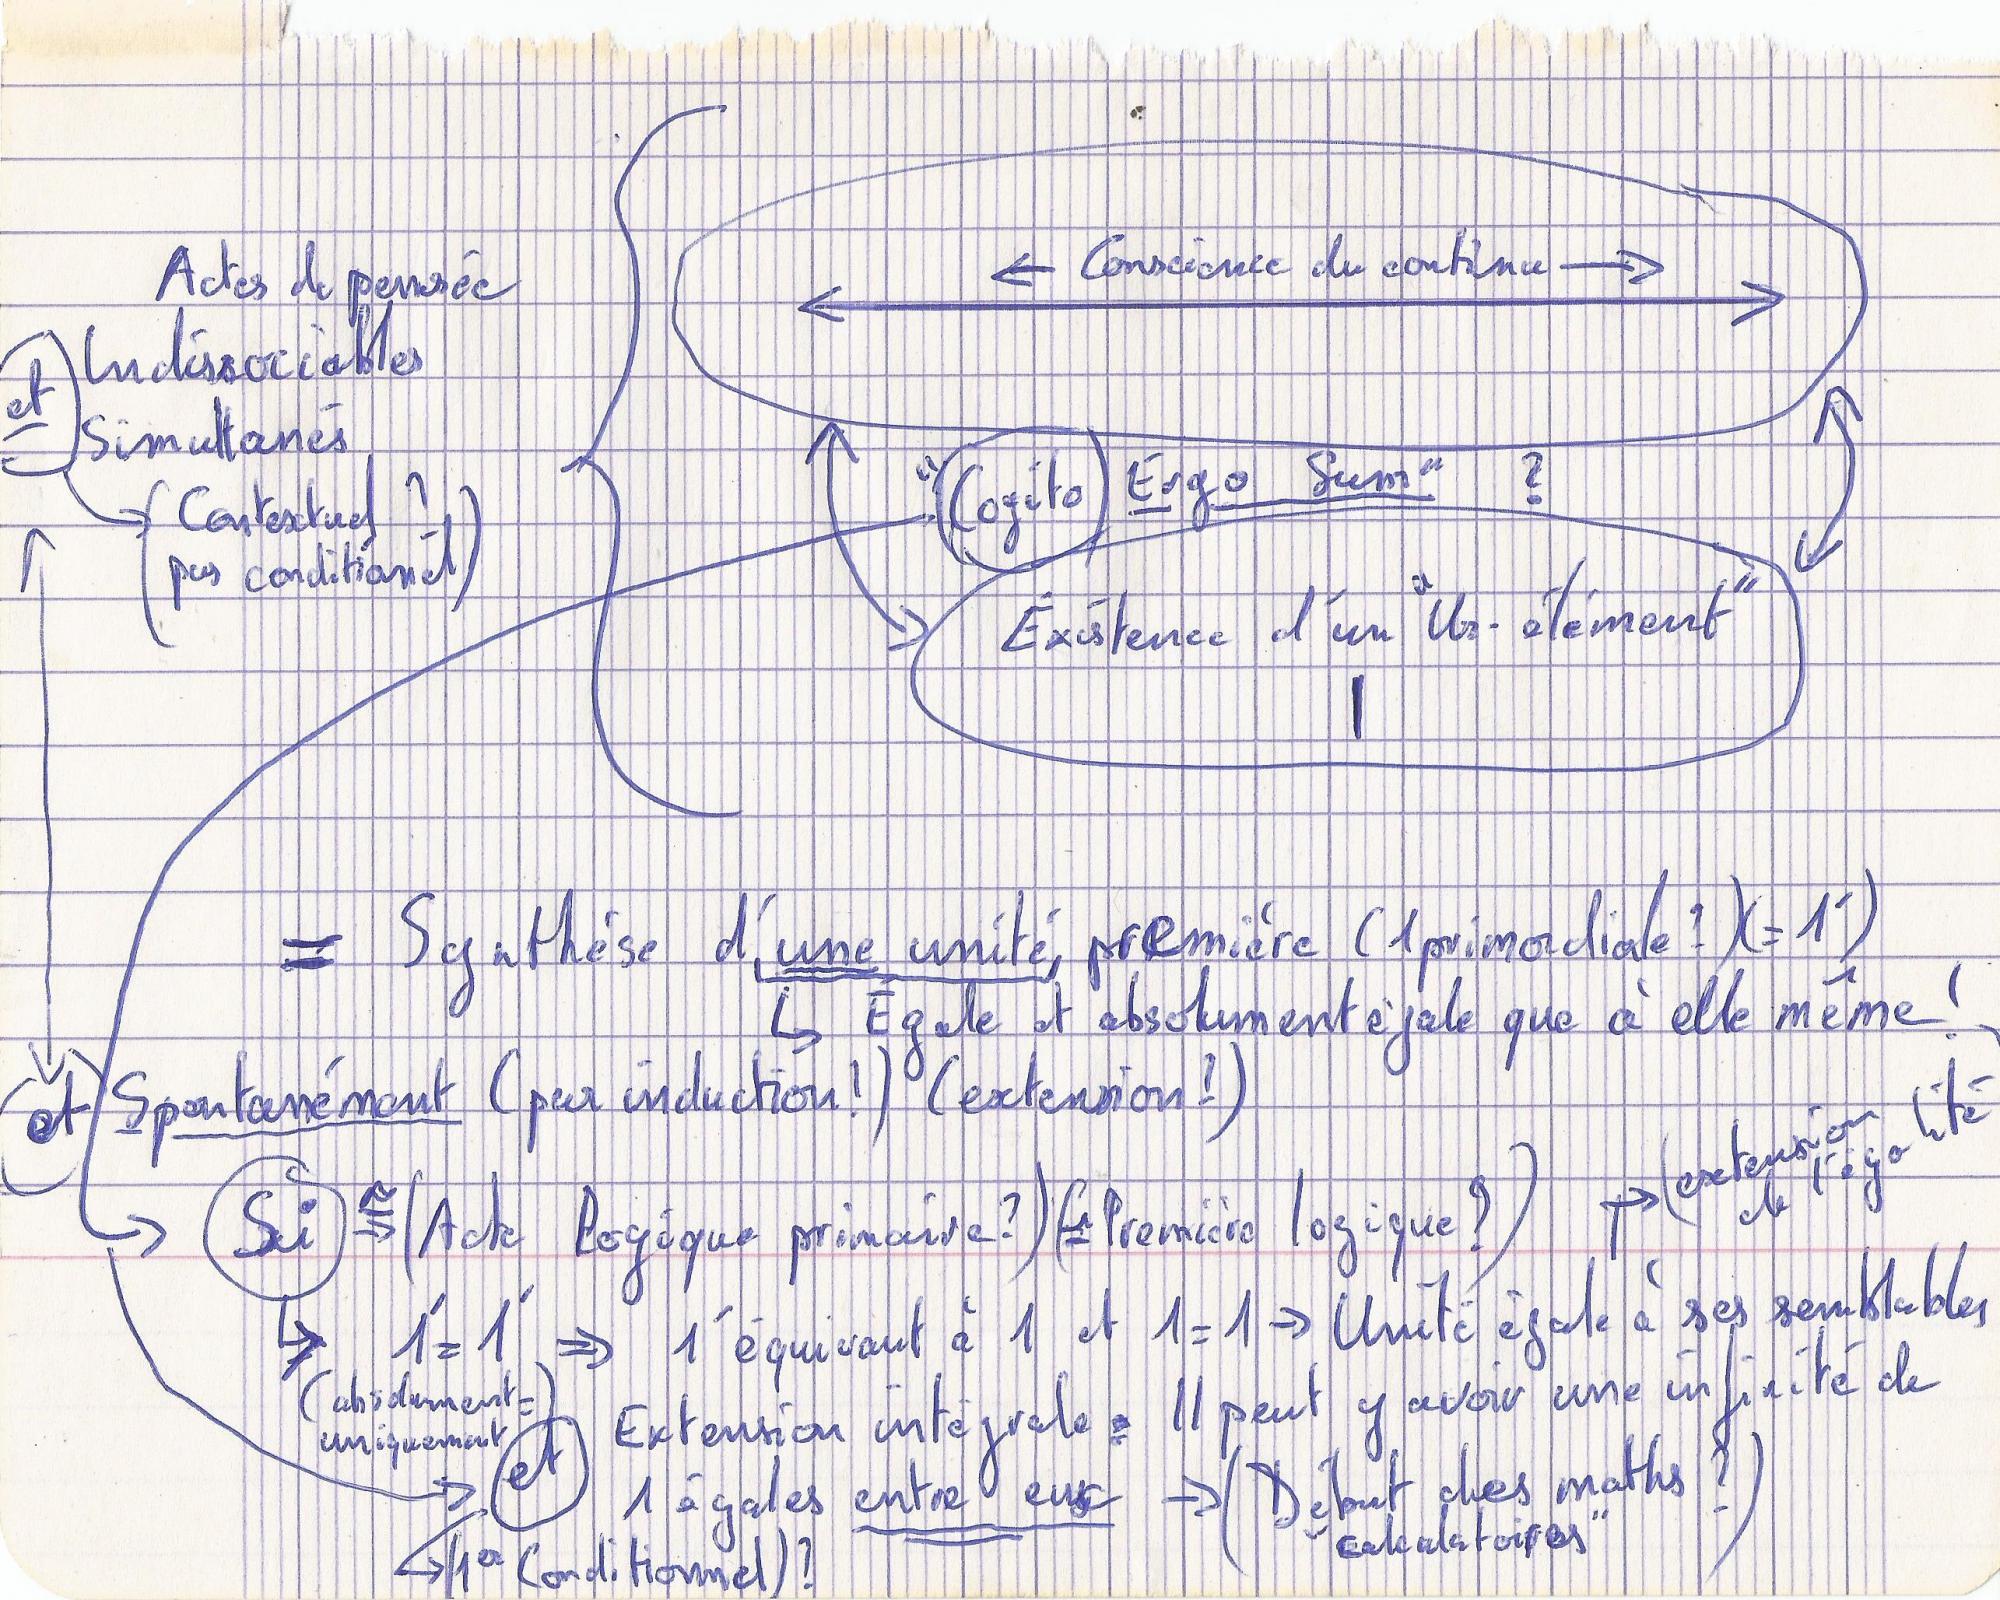 ← Conscience du continu →
Actes de pensée
et Indissociables
Simultanés
(Contextuel ?
pas conditionnel)
"Cogito Ergo Sum" ?
Existence d'un "Ur-élément"
1
= Synthèse d'une unité première (1 primordiale ?) (= 1')
↳ Égale et absolument égale que à elle même !
et Spontanément (par induction !) (extension !)
(extension de l'égalité
Si ≅ (Acte logique primaire ?) (≅ Première logique ?)
↳ 1' = 1' ⇒ 1' équivaut à 1 et 1 = 1 → Unité égale à ses semblables
(absolument =
uniquement)
Extension intégrale = Il peut y avoir une infinité de
et 1 égales entre eux → (Début des maths ?
"calculatoires")
↳ (1er Conditionnel) ?